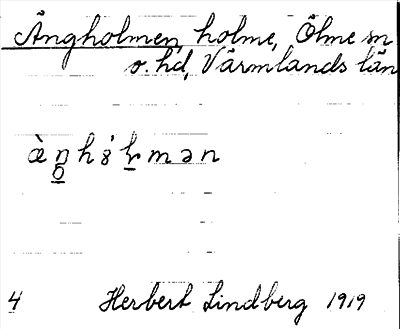 Ängholmen, holme, Ölme sn
o. hd, Värmlands län
4 Herbert Lindberg 1919